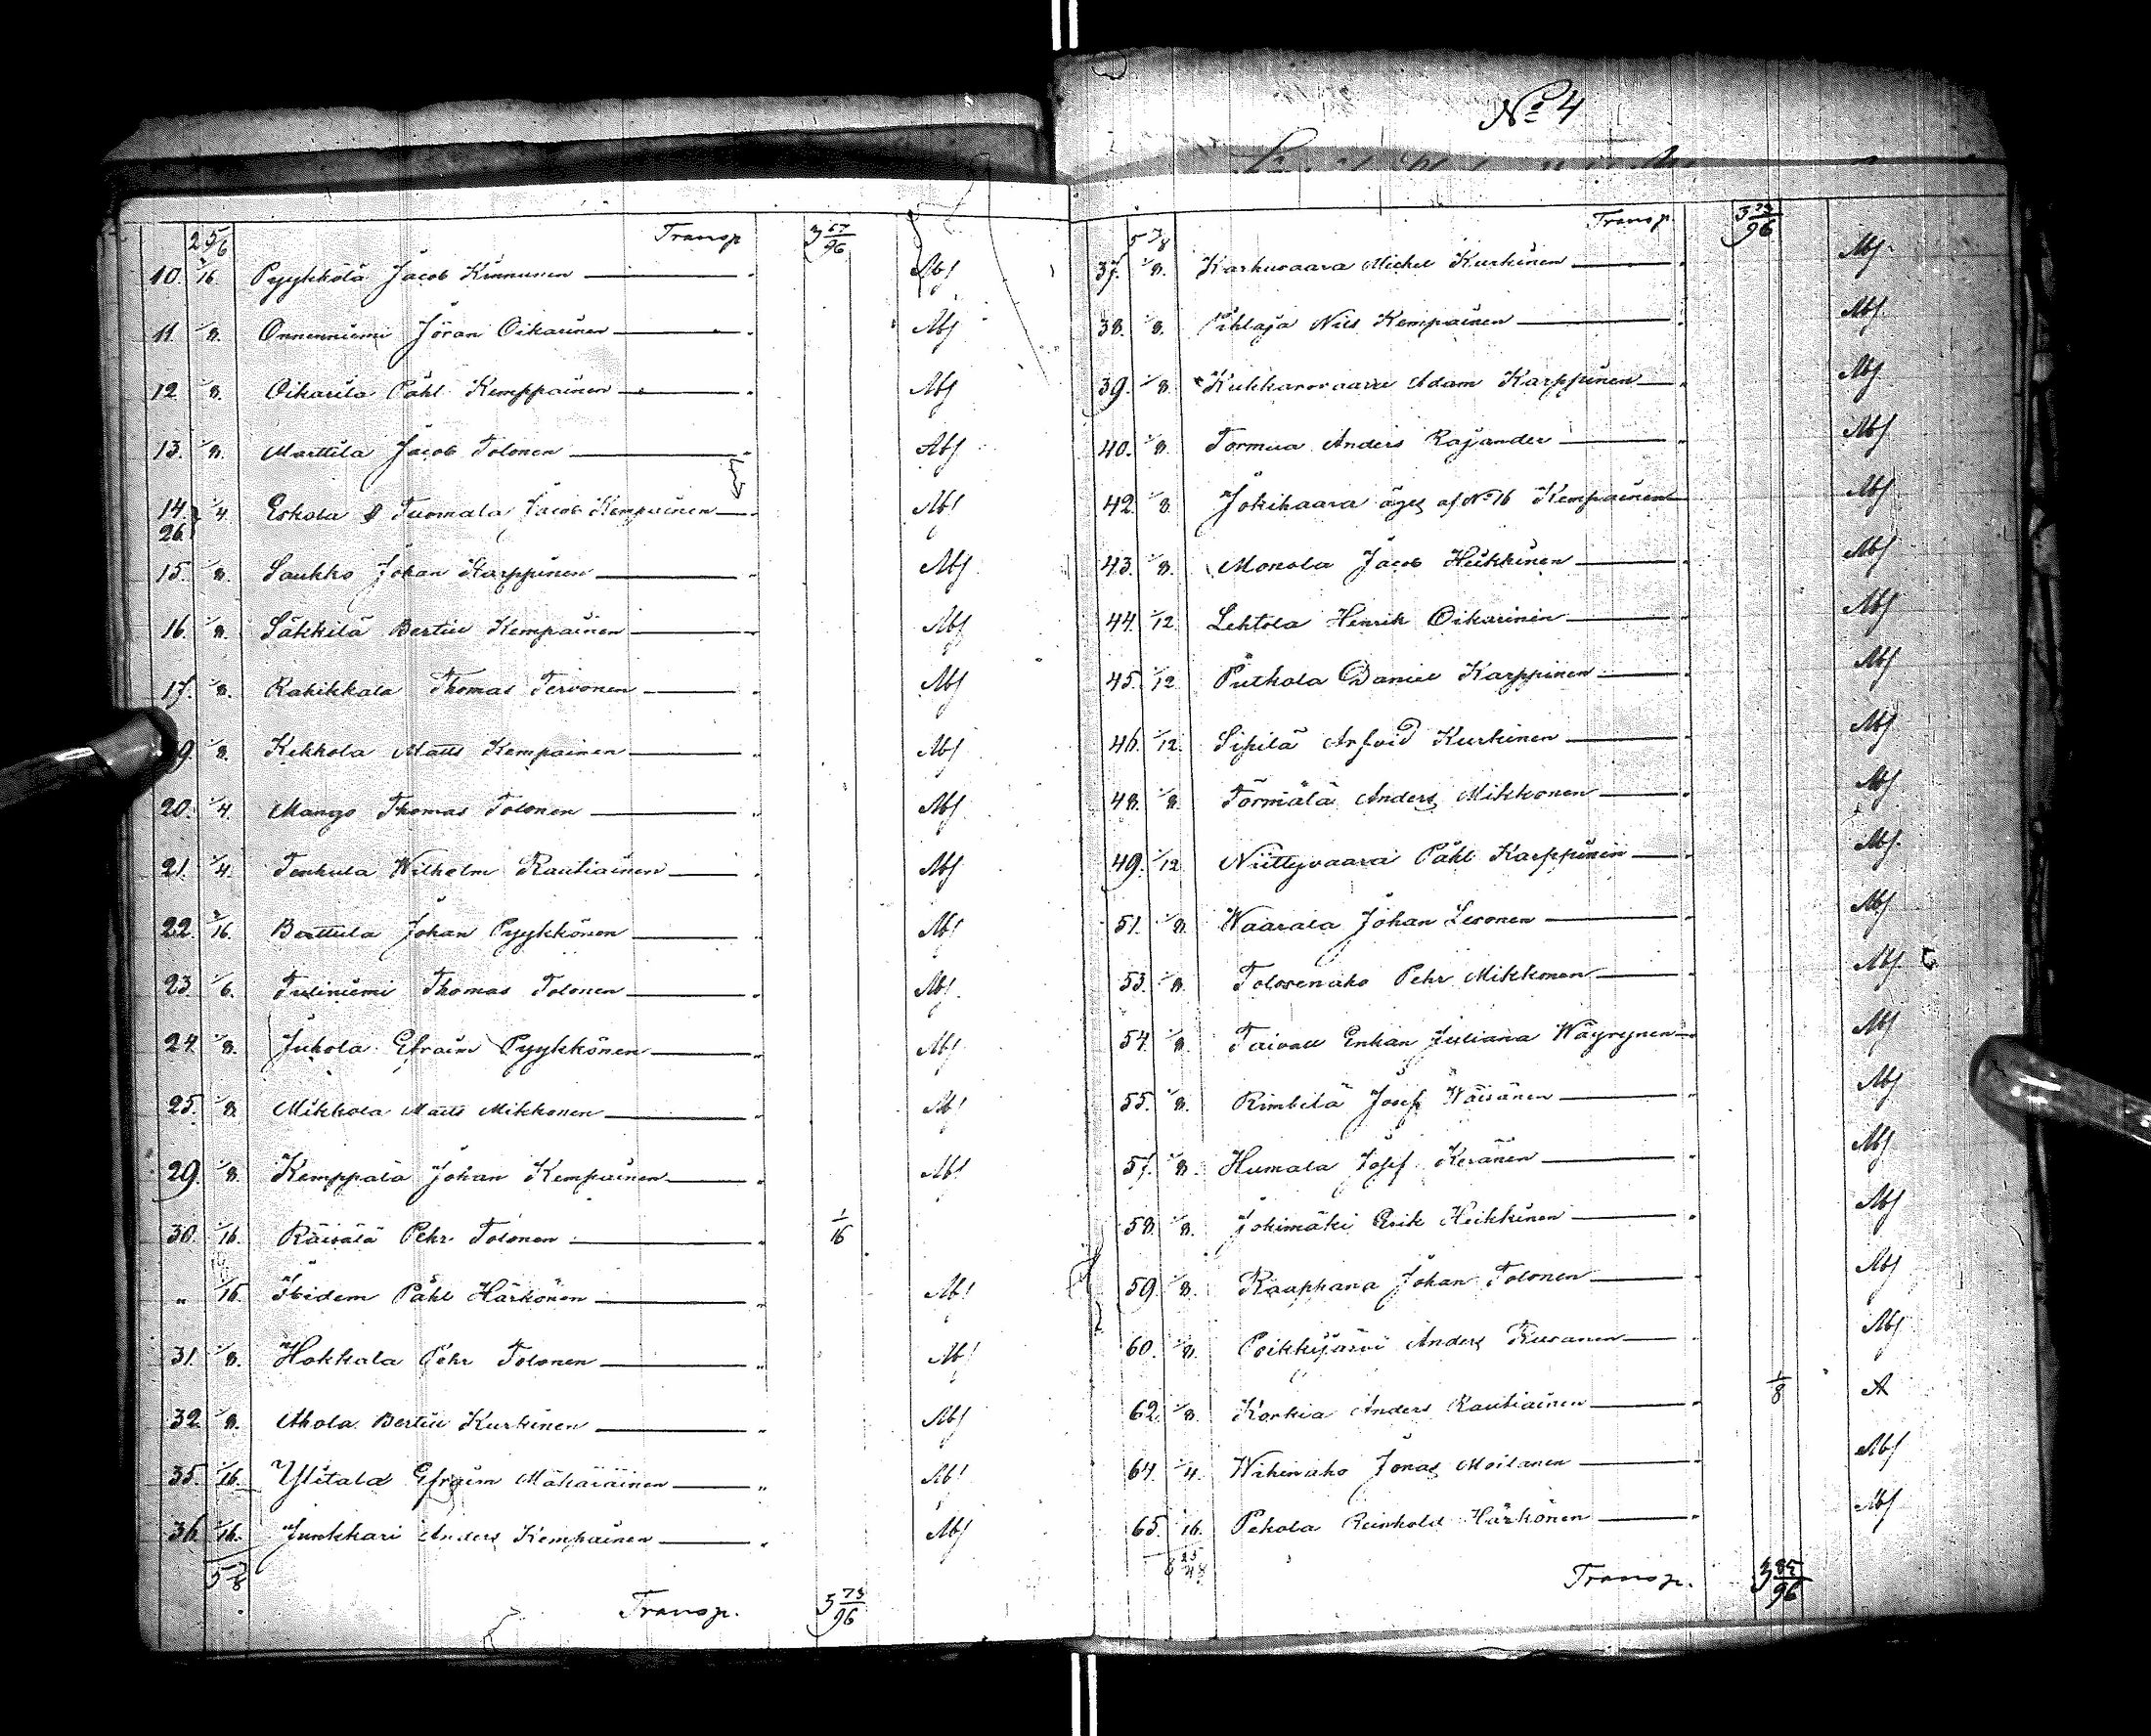 2 5/6 Transp 3 57/96
10. 1/16. Pyykkölä Jacob Kinnunen — " Abf
11. 1/8. Onnenniemi Jöran Oikarinen — " Abf
12 1/8. Oikarila Påhl Kemppainen — " Abf
13. 1/8. Marttila Jacob Tolonen — " Abf
14. 26 1/4. Eskola & Tuomala Jacob Kempainen — " Abf
15. 1/8. Saukko Johan Karppinen — " Abf
16. 1/8. Säkkilä Bertill Kempainen — " Abf
17. 1/8. Rahikkala Thomas Tervonen — " Abf
9. 1/8. Kekkola Matts Kempainen — " Abf
20. 1/4. Mango Thomas Tolonen — " Abf
21. 1/4. Tenhula Wilhelm Rautiainen — " Abf
22. 1/16. Berttula Johan Pyykkönen — " Abf
23. 1/6. Tuliniemi Thomas Tolonen — " Abf
24. 1/8. Juhola Efraim Pyykkönen — " Abf
25. 1/8. Mikkola Matts Mikkonen — " Abf
29. 1/8. Kemppala Johan Kempainen — " Abf
30. 1/16. Räisälä Pehr Tolonen — " 1/16
" 1/16. Ibidem Påhl Härkönen — " Abf
31. 1/8. Hokkala Pehr Tolonen — " Abf
32. 1/8. Ahola Bertill Kurkinen — " Abf
35. 1/16. Ylitalo Efraim Mähäräinen — " Abf
36. 1/16. Junkkari Anders Kempainen — " Abf
5 7/8
Transp. 3 73/96
No 4
5 7/8 Transp. 3 73/96
37. 1/8. Karhuvaara Michel Kurkinen — " Abf
38. 1/8. Pihlaja Nils Kempainen — " Abf
39. 1/8. Kukkarovaara Adam Karppinen — " Abf
40. 1/8. Tormua Anders Rajander — " Abf
42. 1/8. Jokihaara äges af No 16 Kempainen — Abf
43. 1/8. Monola Jacob Heikkinen — " Abf
44. 1/12. Lehtola Henrik Oikarinen — " Abf
45. 1/12. Putkola Daniel Karppinen — " Abf
46. 1/12. Sipilä Arfvid Kurkinen — " Abf
48. 1/8. Törmälä Anders Mikkonen — " Abf
49. 1/12 Niittyvaara Påhl Karppinen — " Abf
51. 1/8. Waarala Johan Lesonen — " Abf
53. 1/8. Tolosenaho Pehr Mikkonen — " Abf
54. 1/8. Taivall Enkan Juliana Wäyrynen — " Abf
55. 1/8. Rimbilä Josef Wäisänen — " Abf
57. 1/8. Humala Josef Keränen — " Abf
58. 1/8. Jokimäki Erik Heikkinen — " Abf
59. 1/8. Raappana Johan Tolonen — " Abf
60. 1/8. Poikkijärvi Anders — " Abf
62. 1/8. Korkia Anders Rautiainen — " 1/8 A
64. 1/4. Wihinaho Jonas Moilanen — " Abf
65. 1/16. Pekola Reinhold Härkönen — " Abf
8 25/48
Transp. 3 85/96